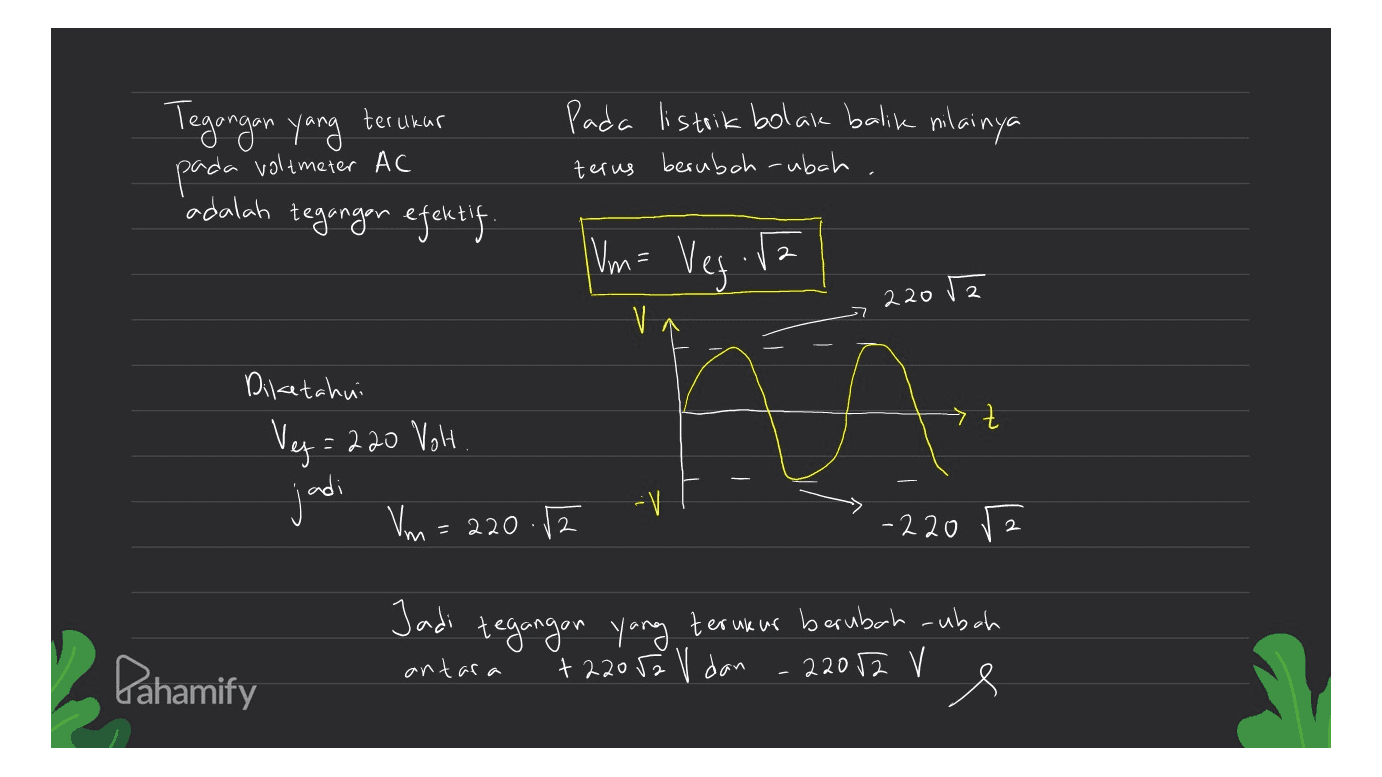 Tegangan yang terukur
pada voltmeter AC
adalah tegangan efektif.
Pada listrik bolak balik nilainya
terus berubah-ubah.
Vm = Vef . √2
V
220 √2
t
-V
-220 √2
Diketahui
Vef = 220 Volt.
jadi
Vm = 220 . √2
Jadi tegangan yang terukur berubah-ubah
antara + 220 √2 V dan - 220 √2 V
Pahamify